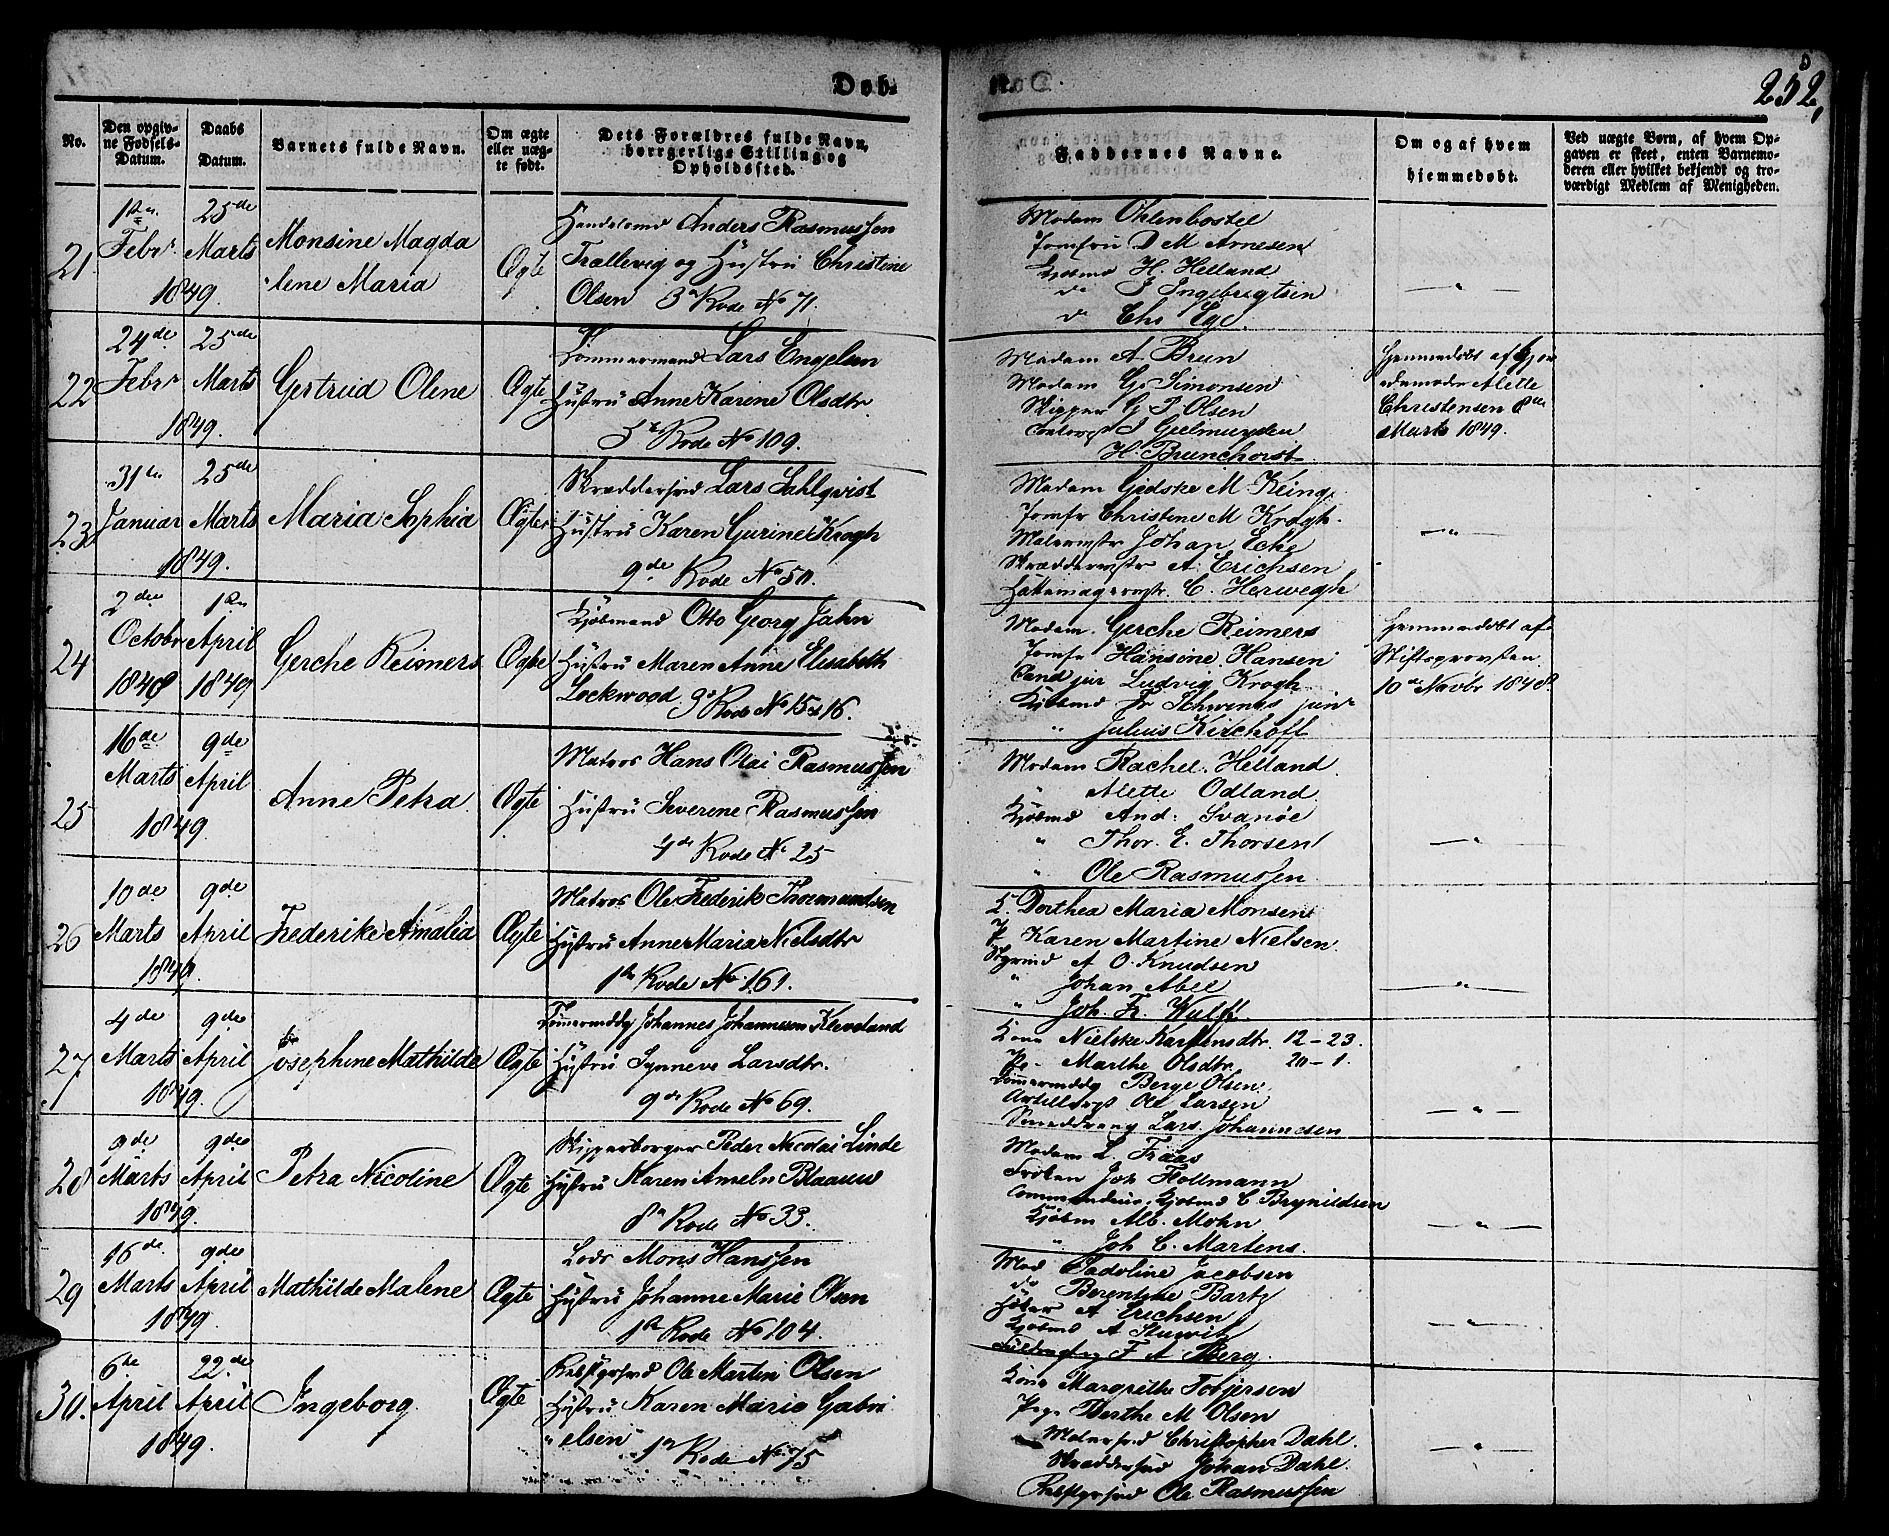 Døb.
252,
No.
Den opgiv-
ne Fødsels-
Datum.
Daabs
Datum.
Barnets fulde Navn.
Om ægte
eller uæg-
te født.
Dets Forældres fulde Navn,
borgerlige Stilling og
Opholdssted.
Faddernes Navne.
Om og af hvem
hjemmedøbt.
Ved uægte Børn, af hvem Op-
gaven er skeet, enten Barnemo-
deren eller hvilket bekjendt og tro-
værdigt Medlem af Menigheden.
21.
Febr
1849.
25de
Marts
Monsine Magda
lene Maria
Ægte
Anders Rasmussen
Trællevig og Hustru Christine
Olsen 3 Rode No 71.
Madam Ohlenbostel
Jomfru D M Arnesen
Kjøbmd H. Helland
do J Ingebrigtsen
do Chr Ege
22
24de
Febr
1849.
25de
Marts
Gertrud Olene
Ægte
Tømmermand Lars Engelsen
Hustru Anne Karine Olsdtr
5 Rode No 109.
Madam A. Brun
Madam G. Simonsen
Skipper G P Olsen
J Geelmuyden
H. Brunchorst
Hjemmedøbt af Gjor
demoder Alette
Christensen 8de
Marts 1849.
23
31te
Januar
1849.
25de
Marts
Maria Sophia
Ægte
Skrædersvd Lars Sahlqvist
Hustru Karen Gurine Krogh
9de Rode No 50.
Madam Gidske M. Reing
Jomfr Christine M Krogh.
Malermstr Johan Ecke
Skræddermstr A. Erichsen
Hattemagermstr. C. Herwegh
24
2den
Octobr
1848
April
1849
Gerche Reimers
Ægte
Kjøbmand Otto Georg Jahn
Hustru Maren Anne Elisabeth
Lockwood 9 Rode No 15 & 16.
Madam Gerche Reimers
Jomfr Hansine Hansen
Cand jur Ludvig Krogh
Kjøbmd Fr Schwenes junr
" Julius Kirchhoff
Hjemmedøbt af
Stiftsprovsten
10de Novbr 1848.
25
16de
Marts
1849.
9de
April
Anne Petra
Ægte
Matros Hans Olai Rasmussen
Hustru Severene Rasmussen
4de Rode No 25
Madam Rachel Helland
" Alette Odland
Kjøbmd And. Svanöe
" Thor. E. Thorsen
" Ole Rasmussen
26
10de
Marts
1849.
9de
April
Frederike Amalia
Ægte
Matros Ole Frederik Thormundsen
Hustru Anne Maria Nielsdtr
1ste Rode No 161.
K. Dorthea Maria Monsen
P. Karen Martine Nielsen
A O. Knudsen
" Johan Abel
" Joh. Fr. Wulff
27
4de
Marts
1849.
9de
April
Josephine Mathilde
Ægte
Johannes Johannessen Kleveland
Hustru Synneve Larsdtr.
9de Rode No 69.
Kone Nielske Karstensdtr. 12-23.
Pe Marthe Olsdtr. 20-1.
Berge Olsen
Ole Larsen
Lars Johannesen
28
9de
Marts
1849.
9de
April
Petra Nicoline
Ægte
Skipperborger Peder Nicolai Linde
Hustru Karen Amseln Blaauw
8 Rode No 33.
Madam L. Fraas
Frøken Joh Hollmann
Kjøbmd C Brynildsen
Kjøbm Alb. Mohn
" Joh C. Martens.
29
16de
Marts
1849.
9de
April
Mathilde Malene
Ægte
Lods Mons Hanssen
Hustru Johanne Marie Olsen
1ste Rode No 104.
Mad Jacobsen
do Berentine Bartz
A Erichsen
Kjøbmd A Stuwitz
F A Berg.
30.
6te
April
1849.
22de
April
Ingeborg
Ægte
Ole Martin Olsen
Hustru Karen Marie Gabri
elsen 1 Rode No 75
Kone Margrethe Torjersen
Pige Berthe M Olsen
Malersvd Christopher Dahl.
Skræddersvd Johan Dahl.
Ole Rasmussen